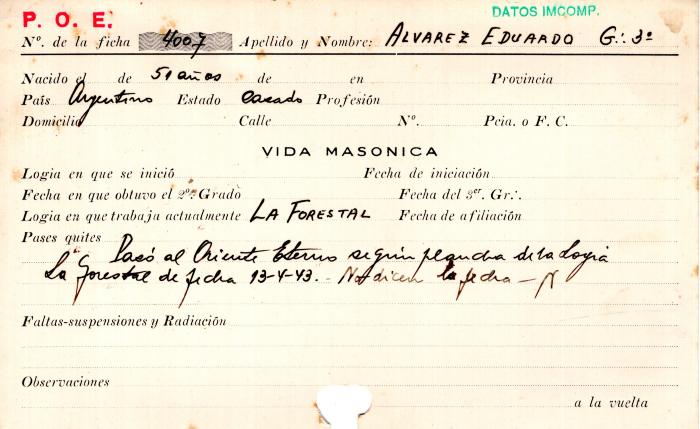 P. O. E.
DATOS IMCOMP.
Nº. de la ficha 4007 Apellido y Nombre: ALVAREZ EDUARDO G∴ 3º
Nacido el de 50 años de en Provincia
País Argentino Estado Casado Profesión
Domicilio Calle Nº. Pcia. o F. C.
VIDA MASONICA
Logia en que se inició Fecha de iniciación
Fecha en que obtuvo el 2º Grado Fecha del 3er. Gr∴
Logia en que trabaja actualmente LA FORESTAL Fecha de afiliación
Pases quites
Pasó al Oriente Eterno según plancha de la Logia
La Forestal de fecha 13-4-43. - No dicen la fecha -
Faltas-suspensiones y Radiación
Observaciones
a la vuelta